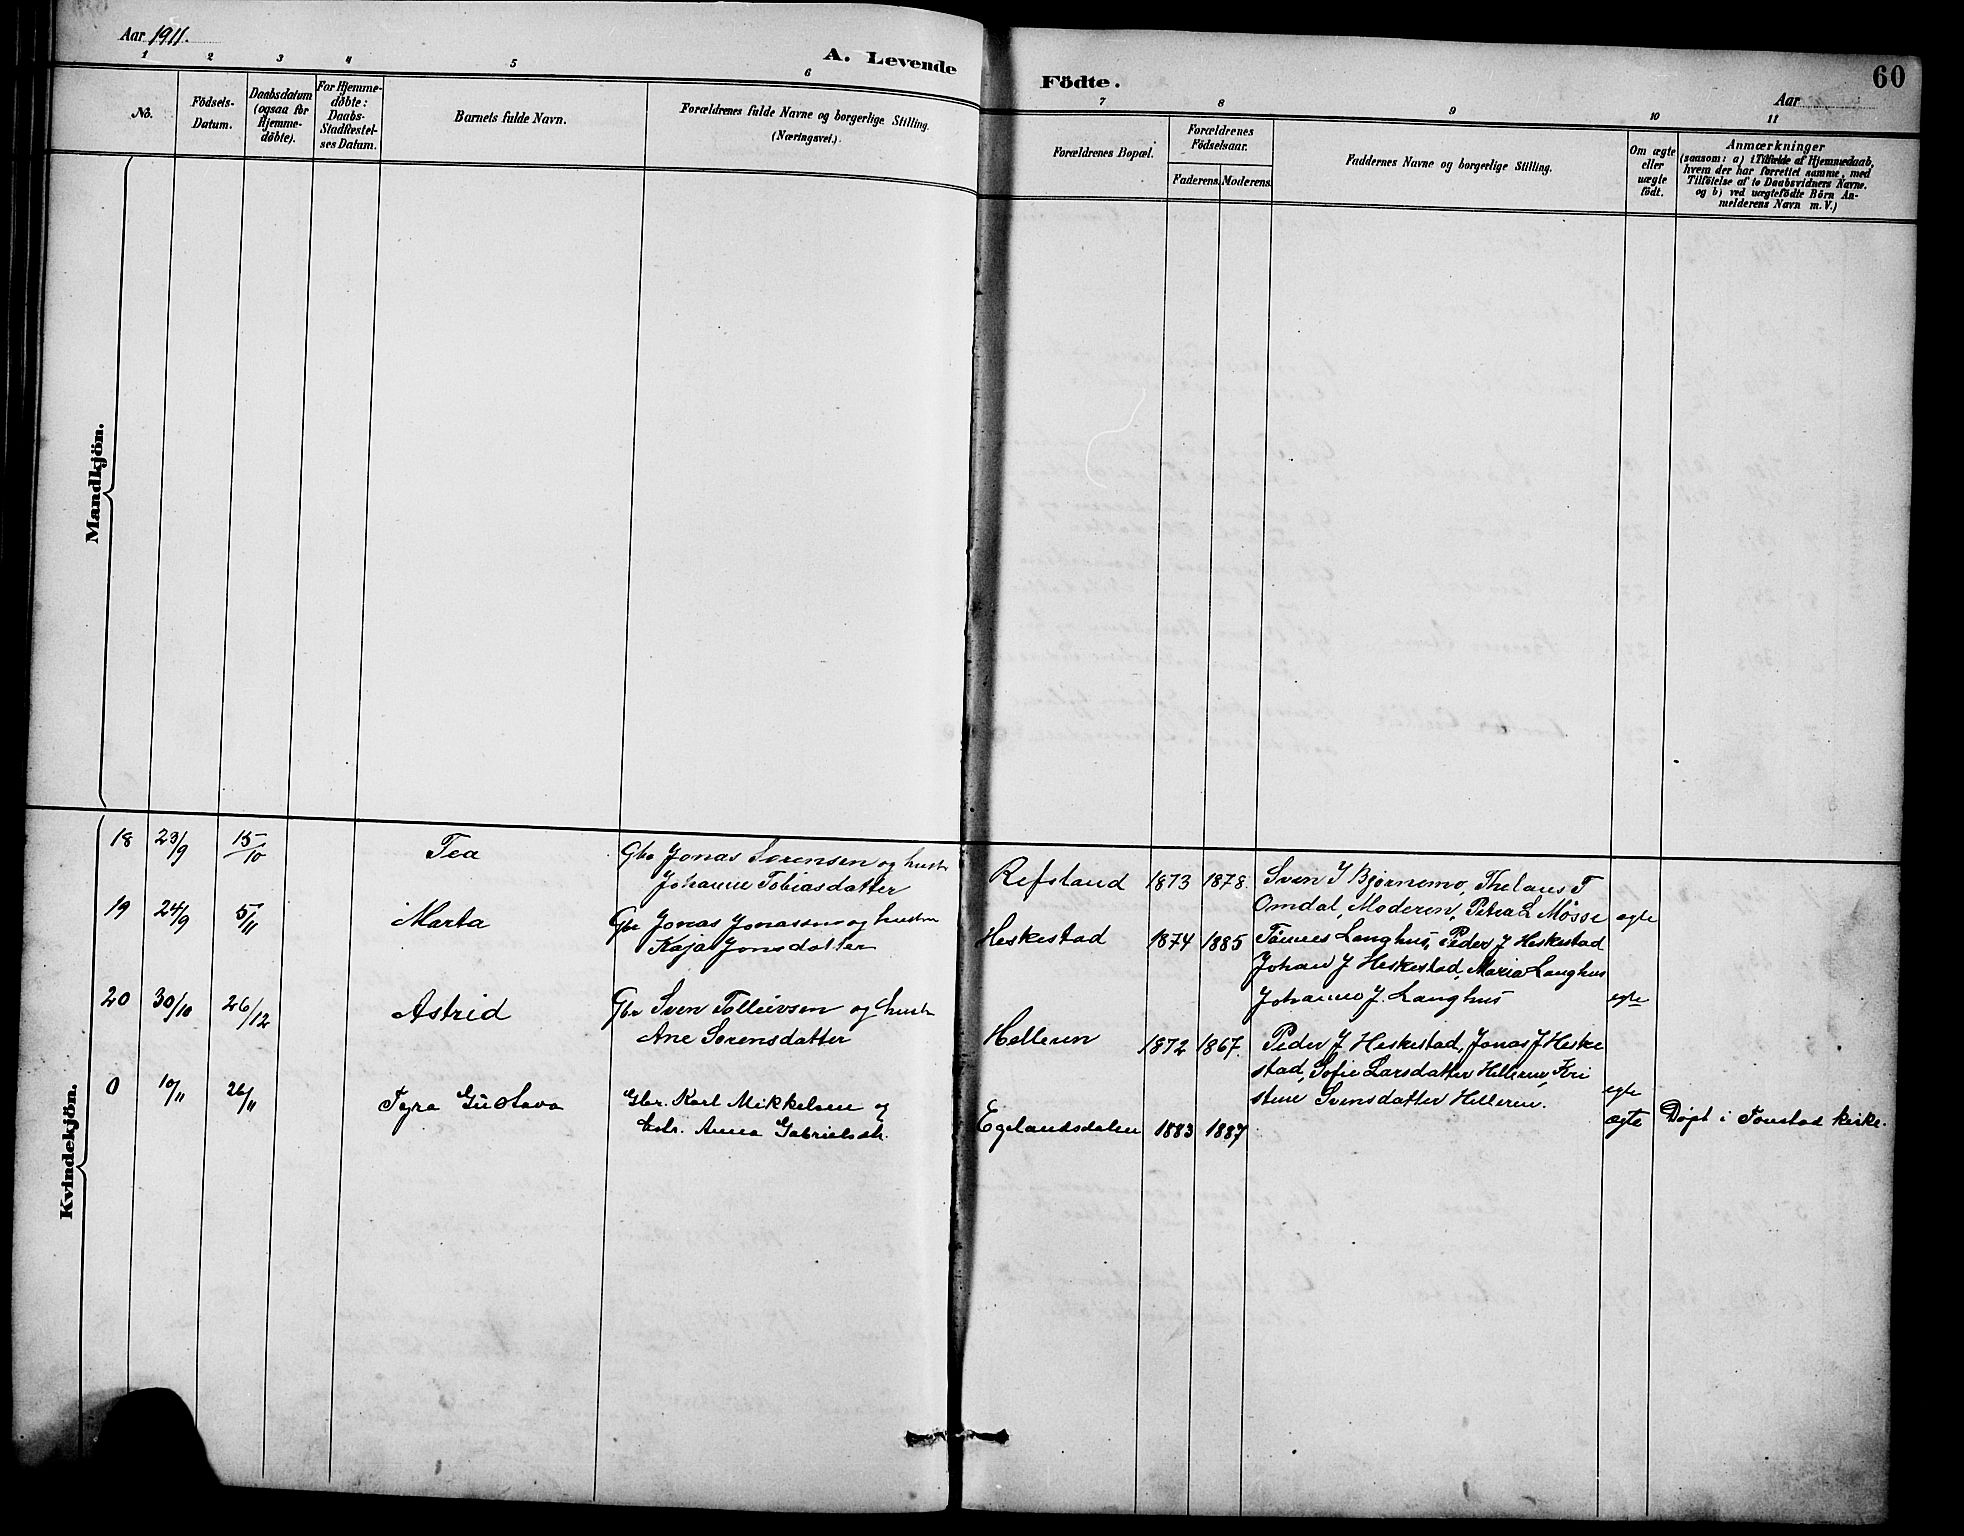 Aar 1911.
A. Levende Födte.
60
Aar
1 2 3 4 5 6 7 8 9 10 11
No.
Födsels-
Datum.
Daabsdatum
(ogsaa for
Hjemme-
döbte).
For Hjemme-
döbte:
Daabs-
Stadfæstel-
ses Datum.
Barnets fulde Navn.
Forældrenes fulde Navne og borgerlige Stilling.
(Næringsvei.)
Forældrenes Bopæl.
Forældrenes
Födselsaar.
Faderens. Moderens.
Faddernes Navne og borgerlige Stilling.
Om ægte
eller
uægte
födt.
Anmærkninger
(saasom: a) i Tilfælde af Hjemmedaab,
hvem der har forrettet samme, med
Tilföielse af to Daabsvidners Navne.
og b) ved uægtefödte Börn An-
melderens Navn m. V.)
Mandkjön.
Kvindekjön.
18 23/9 15/10 Tea Gbr Jonas Sørensen og hustr
Johanne Tobiasdatter
Refsland 1873 1878. Sven J Bjørnemo, Thelaus T
Omdal, Moderen, Petrea L Møsse ægte
19 24/9 5/11 Marta Gbr Jonas Jonassen og hustru
Kaja Jonsdatter
Heskestad 1874 1885 Tønnes Langhus, Peder J Heskestad
Johan J Heskestad, Maria Langhus
Johanne J. Langhus egte
20 30/10 26/12 Astrid Gbr Sven Tolleivsen og hustr
Ane Sørensdatter
Helleren 1872 1867. Peder J Heskestad, Jonas J Heske
stad, Sofie Larsdatter Helleren, Kri
stine Svensdatter Helleren. egte
0 10/11 26/11 Tyra Gustava Gbr. Karl Mikkelsen og
hstr. Anna Gabrielsdtr.
Egelandsdalen 1883 1887 ægte Døpt i Tonstad kirke.